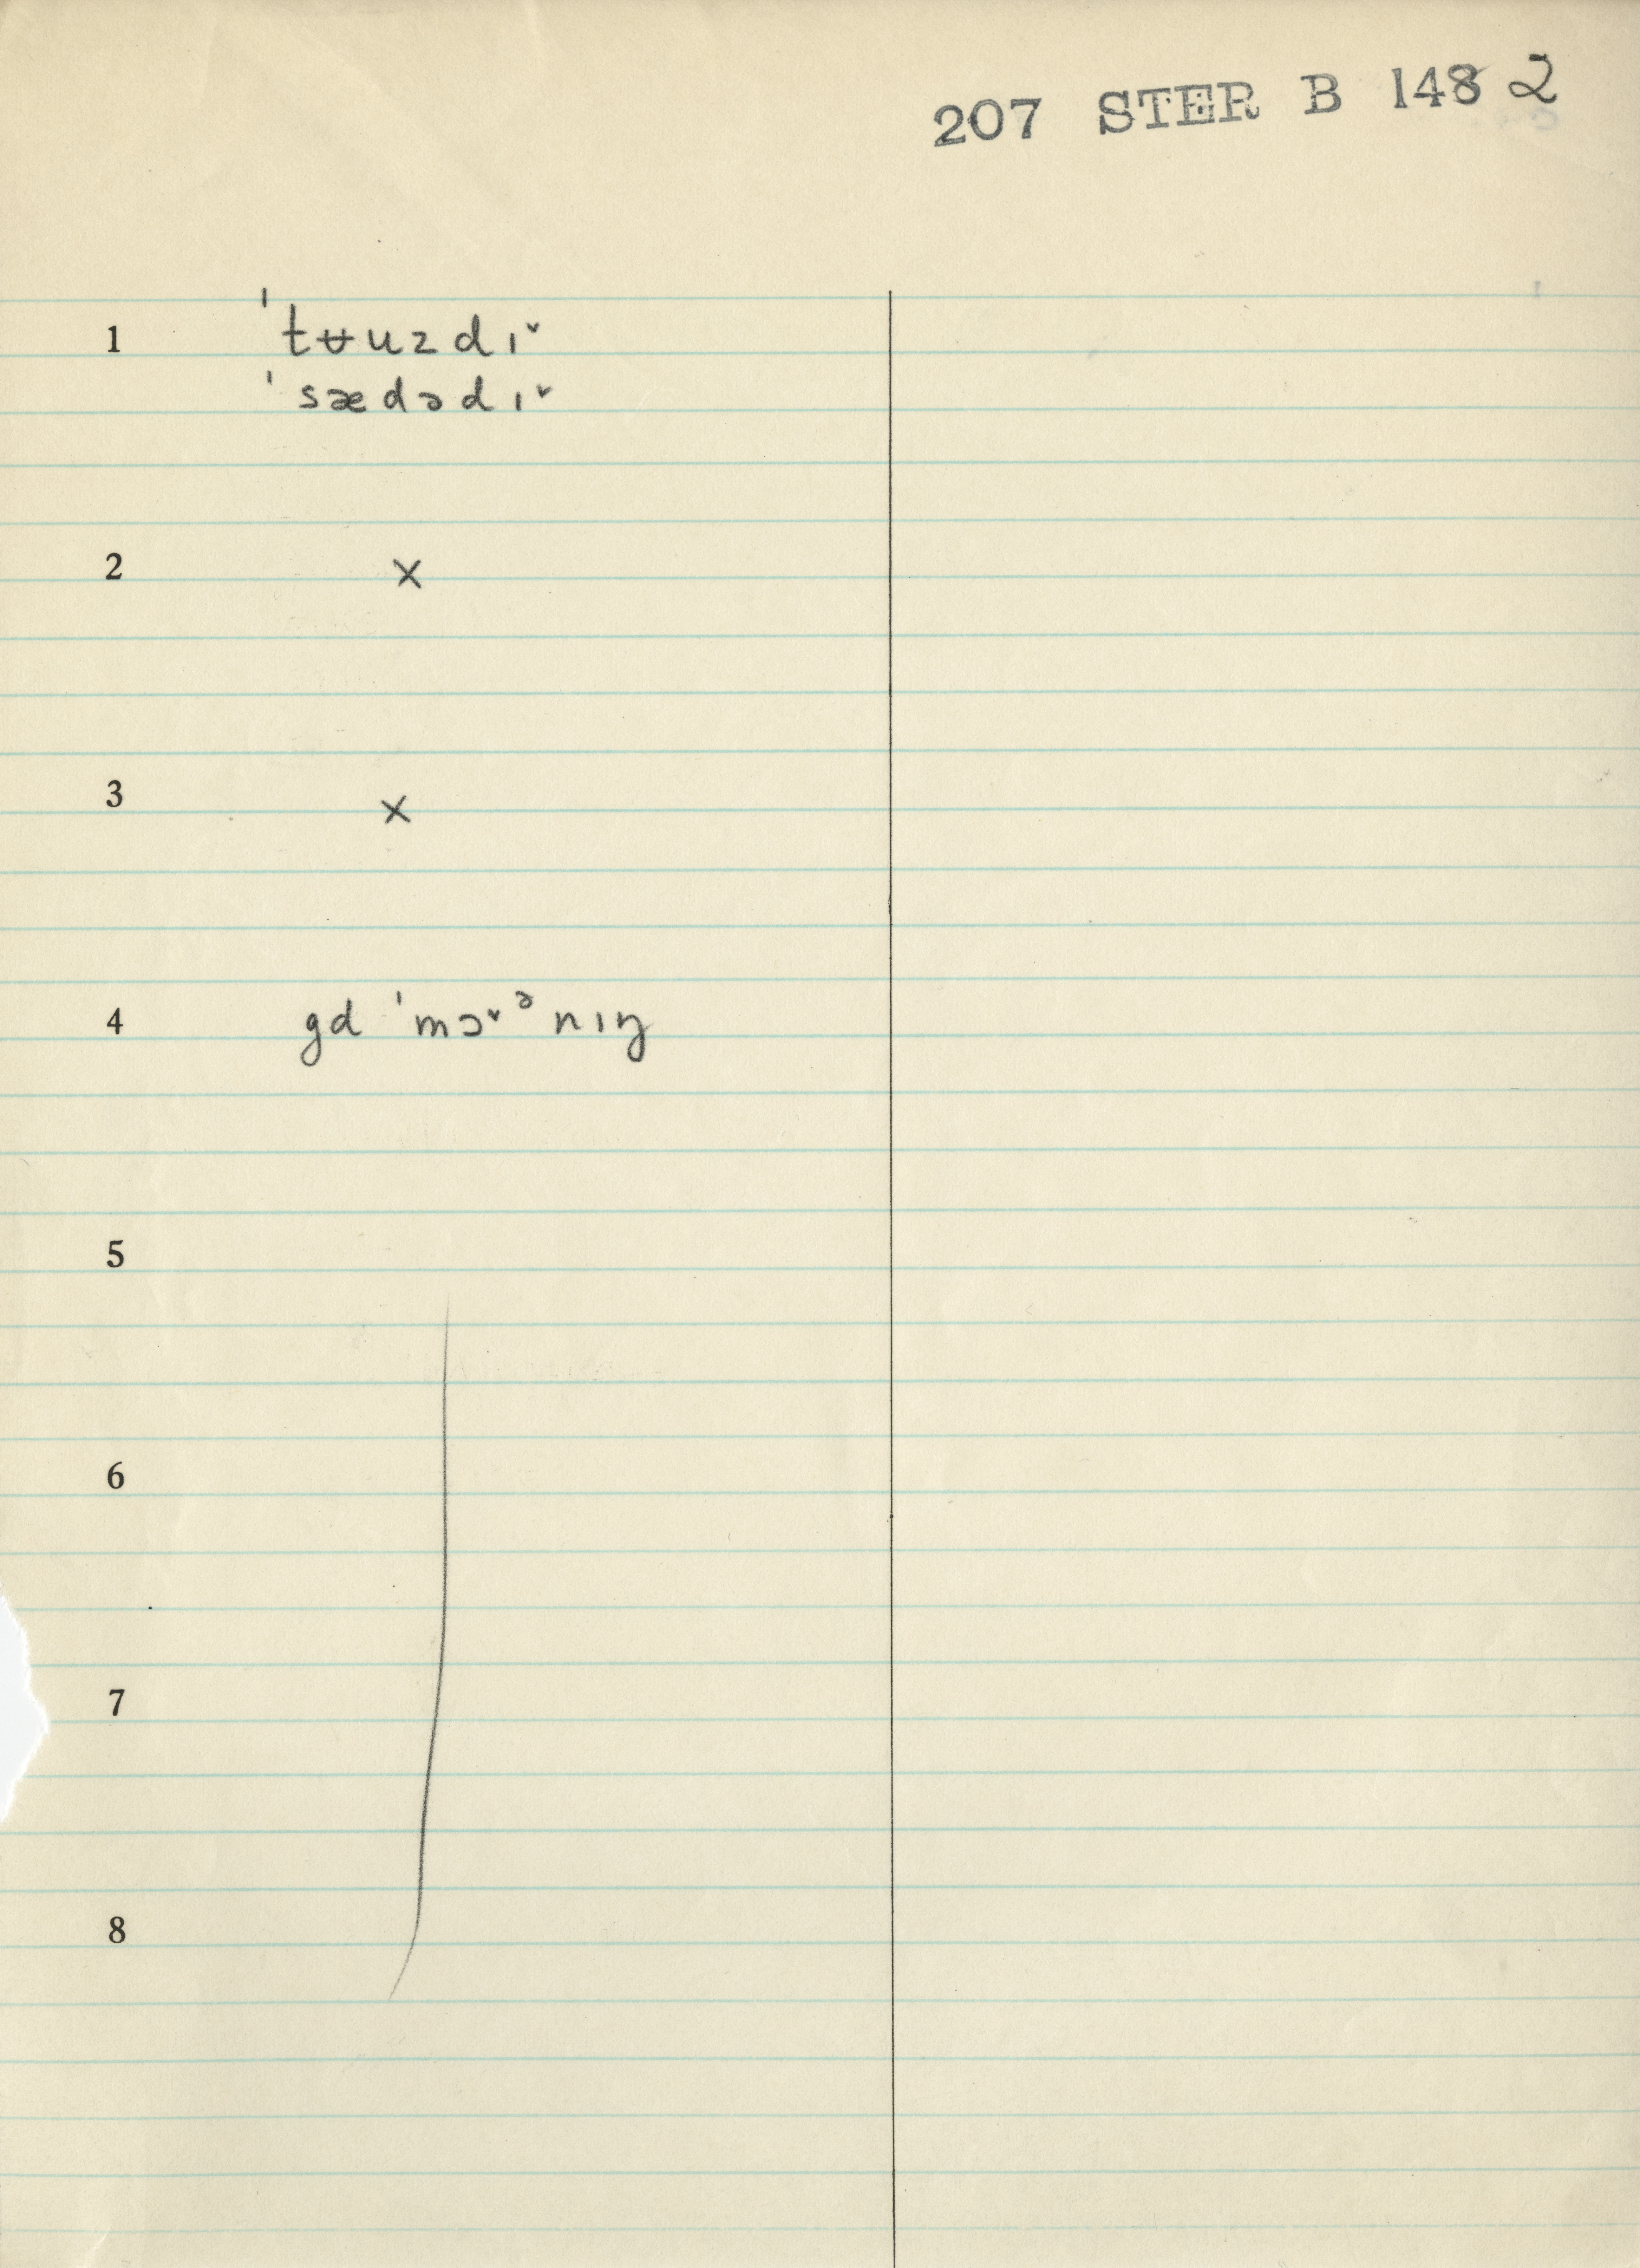 207 STER B 148 2
1 ˈtʉuzdɪ˅
ˈsædədɪ˅
2 ×
3 ×
4 gd ˈmɔ˅ᵊnɪŋ
5
6
7
8